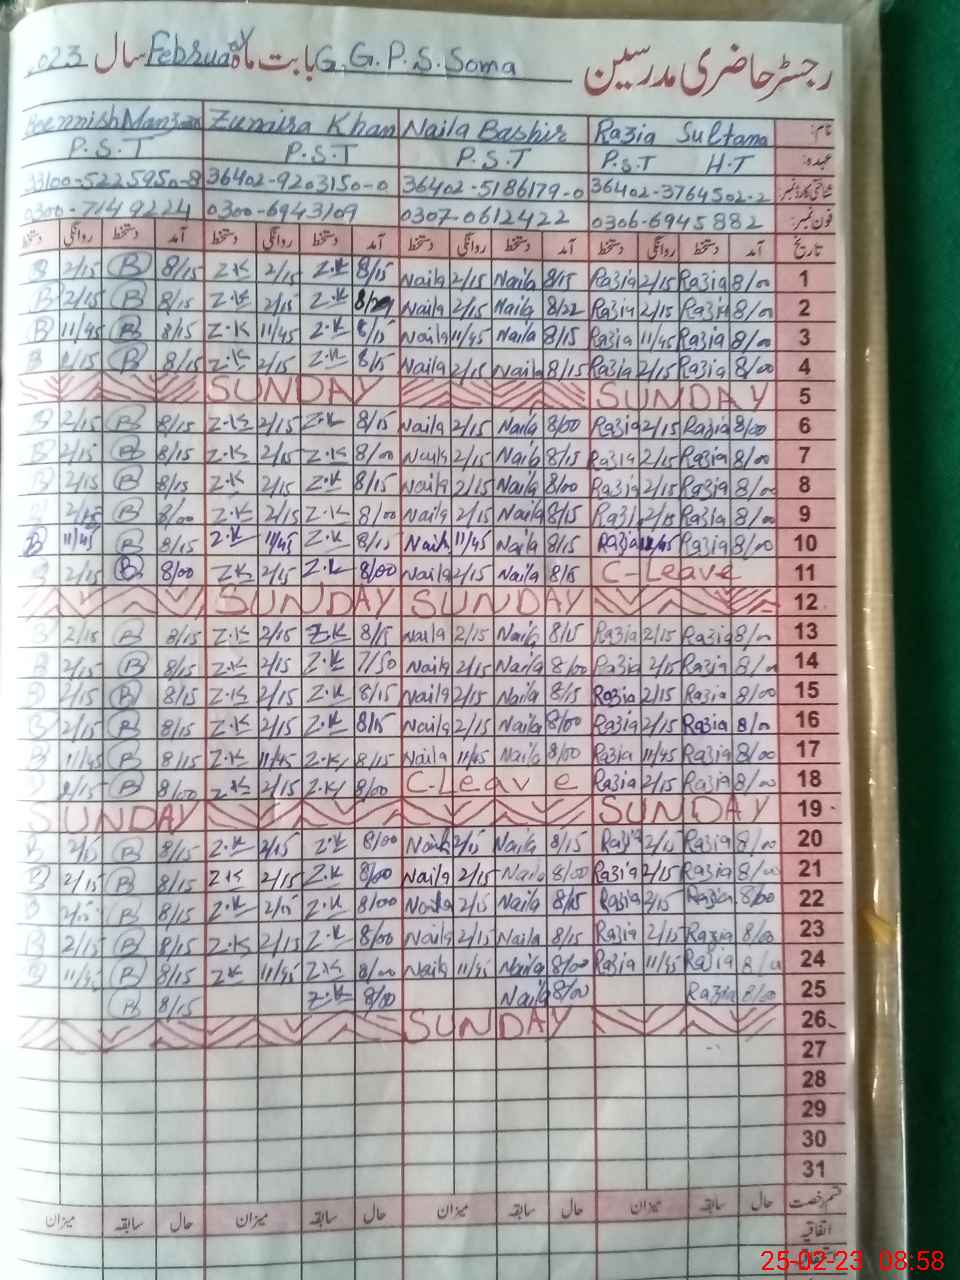 رجسٹر حاضری مدرسین G.G.P.S.Soma بابت ماہ February سال 2023
نام: Razia Sultana Naila Bashir Zunaira Khan
عہدہ: P.S.T H.T P.S.T P.S.T P.S.T
شناختی کارڈ نمبر: 36402-3764502-2 36402-5186179-0 36402-9203150-0 33100-5225950-8
فون نمبر: 0306-6945882 0307-0612422 0300-6943109 0300-7149224
تاریخ آمد دستخط روانگی دستخط آمد دستخط روانگی دستخط آمد دستخط روانگی دستخط آمد دستخط روانگی دستخط
1 8/00 Razia 2/15 Razia 8/15 Naila 2/15 Naila 8/15 Z.K 2/15 Z.K 8/15 B 2/15 B
2 8/00 Razia 2/15 Razia 8/22 Naila 2/15 Naila Z.K 2/15 Z.K 8/15 B 2/15 B
3 8/00 Razia 11/45 Razia 8/15 Naila 11/45 Naila 8/15 Z.K 11/45 Z.K 8/15 B 11/45 B
4 8/00 Razia 2/15 Razia 8/15 Naila 2/15 Naila 8/15 Z.K 2/15 Z.K 8/15 B 2/15 B
5 SUNDAY SUNDAY
6 8/00 Razia 2/15 Razia 8/00 Naila 2/15 Naila 8/15 Z.K 2/15 Z.K 8/15 B 2/15 B
7 8/00 Razia 2/15 Razia 8/15 Naila 2/15 Naila 8/00 Z.K 2/15 Z.K 8/15 B 2/15 B
8 8/00 Razia 2/15 Razia 8/00 Naila 2/15 Naila 8/15 Z.K 2/15 Z.K 8/15 B 2/15 B
9 8/00 Razia 2/15 Razia 8/15 Naila 2/15 Naila 8/00 Z.K 2/15 Z.K 8/00 B 2/15
10 8/00 Razia 11/45 Razia 8/15 Naila 11/45 Naila 8/15 Z.K 11/45 Z.K 8/15 B 11/45 B
11 C-Leave 8/15 Naila 2/15 Naila 8/00 Z.K 2/15 Z.K 8/00 B 2/15
12 SUNDAY SUNDAY
13 8/00 Razia 2/15 Razia 8/15 Naila 2/15 Naila 8/15 Z.K 2/15 Z.K 8/15 B 2/15 B
14 8/00 Razia 2/15 Razia 8/00 Naila 2/15 Naila 7/50 Z.K 2/15 Z.K 8/15 B 2/15 B
15 8/00 Razia 2/15 Razia 8/15 Naila 2/15 Naila 8/15 Z.K 2/15 Z.K 8/15 B 2/15 B
16 8/00 Razia 2/15 Razia 8/00 Naila 2/15 Naila 8/15 Z.K 2/15 Z.K 8/15 B 2/15 B
17 8/00 Razia 11/45 Razia 8/00 Naila 11/45 Naila 8/15 Z.K 11/45 Z.K 8/15 B 11/45 B
18 8/00 Razia 2/15 Razia C-Leave 8/00 Z.K 2/15 Z.K 8/00 B 2/15
19 SUNDAY SUNDAY
20 8/00 Razia 2/15 Razia 8/15 Naila 2/15 Naila 8/00 Z.K 2/15 Z.K 8/15 B 2/15 B
21 8/00 Razia 2/15 Razia 8/00 Naila 2/15 Naila 8/00 Z.K 2/15 Z.K 8/15 B 2/15 B
22 8/00 Razia 2/15 Razia 8/15 Naila 2/15 Naila 8/00 Z.K 2/15 Z.K 8/15 B 2/15 B
23 8/00 Razia 2/15 Razia 8/15 Naila 2/15 Naila 8/00 Z.K 2/15 Z.K 8/15 B 2/15 B
24 8/00 Razia 11/45 Razia 8/00 Naila 11/45 Naila 8/00 Z.K 11/45 Z.K 8/15 B 11/45 B
25 8/00 Razia 8/00 Naila 8/00 Z.K 8/15 B
26 SUNDAY
27
28
29
30
31
قسم رخصت حال سابقہ میزان حال سابقہ میزان حال سابقہ میزان حال سابقہ میزان
اتفاقیہ
25-02-23 08:58